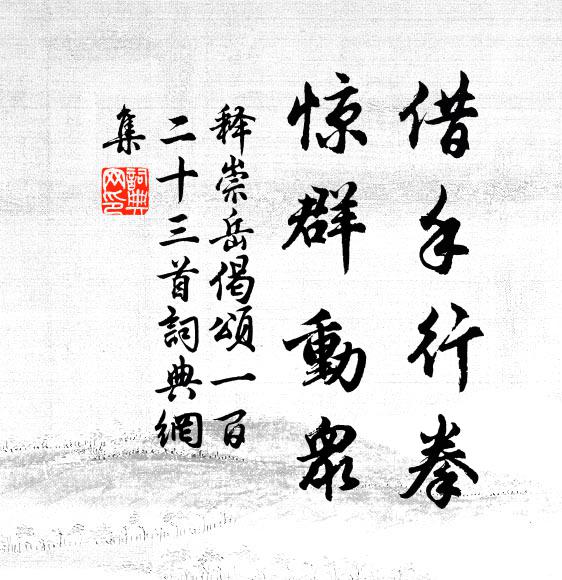 借手行拳
惊群動衆
释崇岳偈頌一百
二十三首詞典網
集
詞典網印